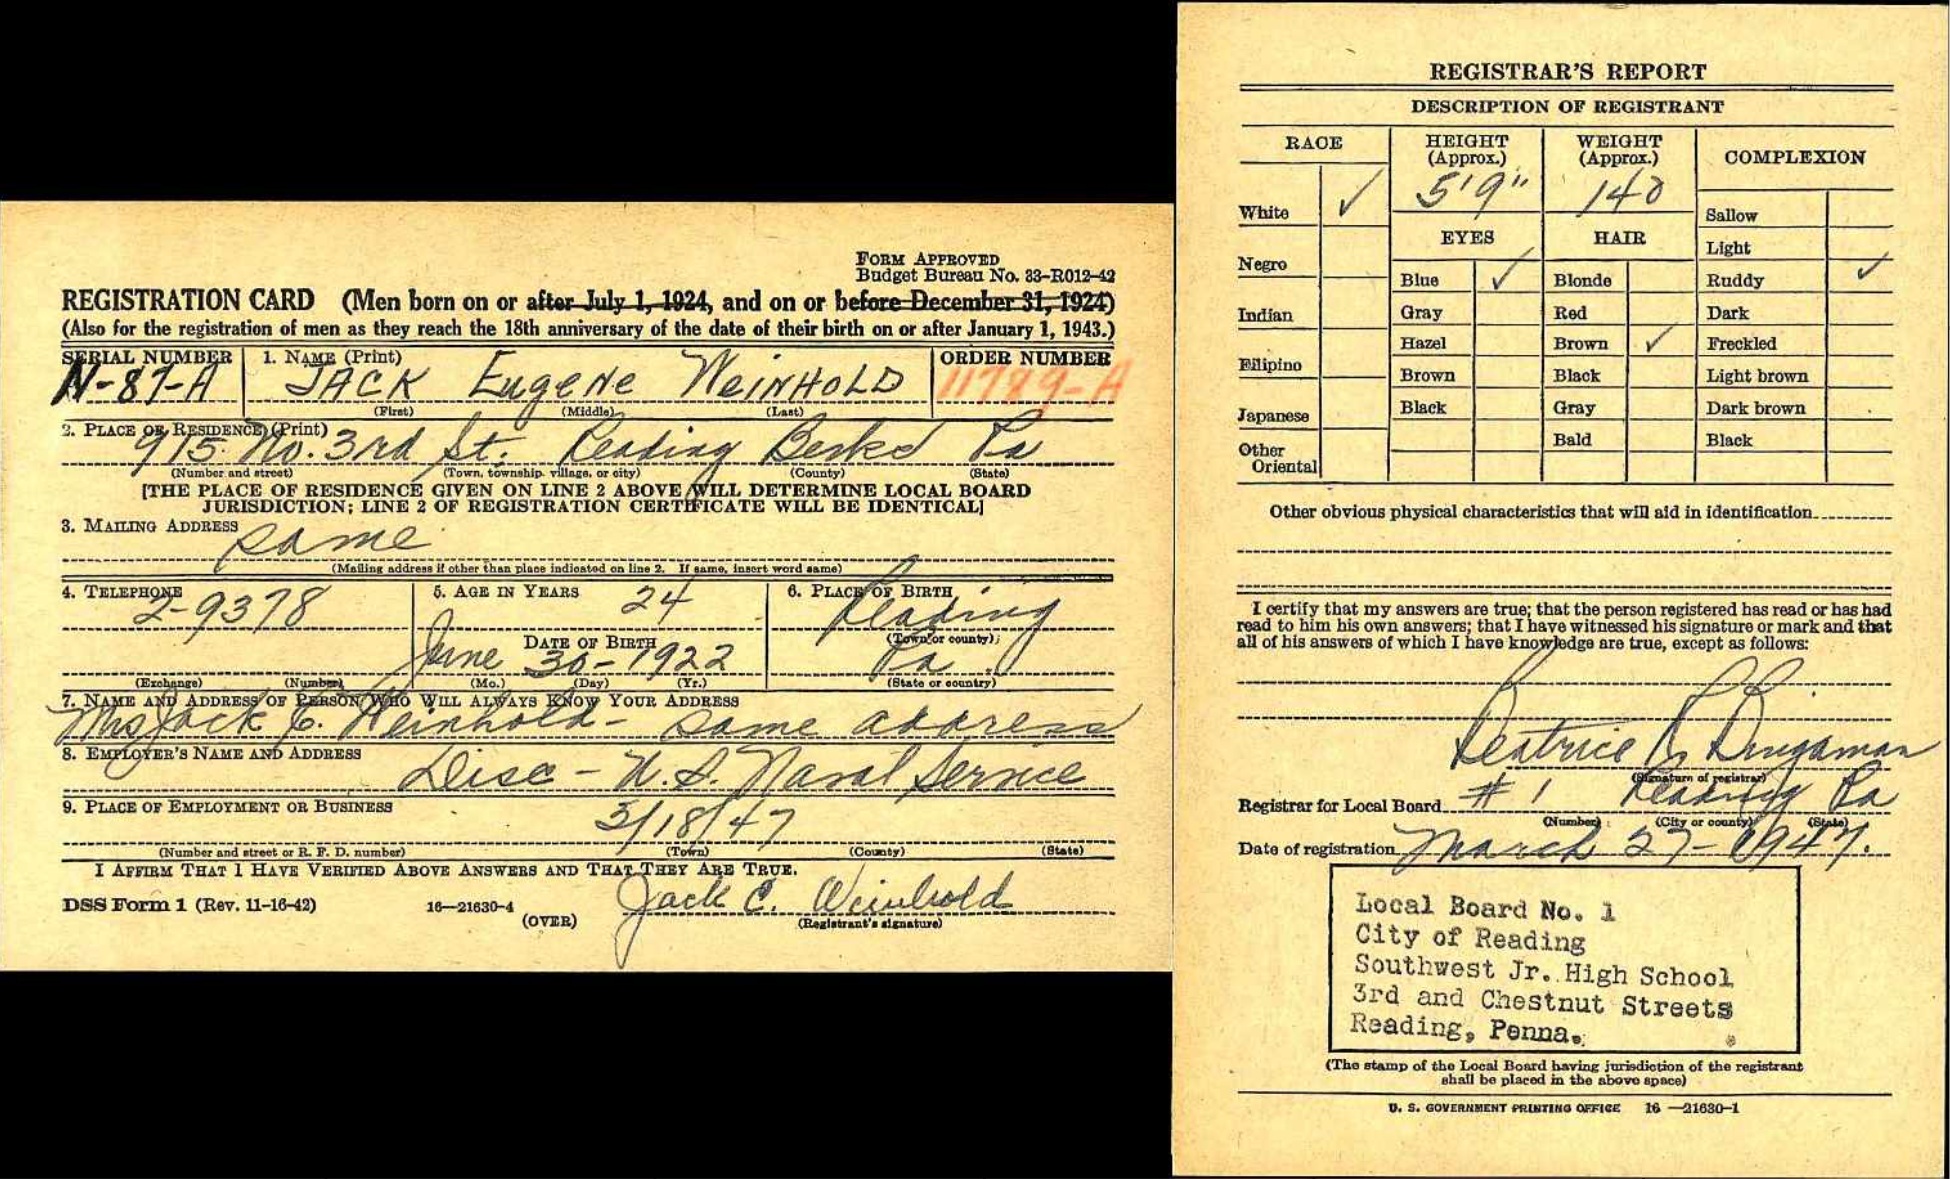 FORM APPROVED
Budget Bureau No. 33-R012-42
REGISTRATION CARD (Men born on or after July 1, 1924, and on or before December 31, 1924)
(Also for the registration of men as they reach the 18th anniversary of the date of their birth on or after January 1, 1943.)
SERIAL NUMBER 1. NAME (Print) ORDER NUMBER
N-87-A JACK EugeNe WeiNHOLD 11789-A
(First) (Middle) (Last)
2. PLACE OF RESIDENCE (Print)
915 No. 3rd St. Reading Berks Pa
(Number and street) (Town, township, village, or city) (County) (State)
[THE PLACE OF RESIDENCE GIVEN ON LINE 2 ABOVE WILL DETERMINE LOCAL BOARD
JURISDICTION; LINE 2 OF REGISTRATION CERTIFICATE WILL BE IDENTICAL]
3. MAILING ADDRESS
same
(Mailing address if other than place indicated on line 2. If same, insert word same)
4. TELEPHONE 5. AGE IN YEARS 24 6. PLACE OF BIRTH
2-9378 Reading
DATE OF BIRTH (Town or county)
June 30-1922 Pa.
(Exchange) (Number) (Mo.) (Day) (Yr.) (State or country)
7. NAME AND ADDRESS OF PERSON WHO WILL ALWAYS KNOW YOUR ADDRESS
Mrs Jack E. Weinhold - same address
8. EMPLOYER'S NAME AND ADDRESS
Disc - U.S. Naval Service
9. PLACE OF EMPLOYMENT OR BUSINESS
3/18/47
(Number and street or R. F. D. number) (Town) (County) (State)
I AFFIRM THAT I HAVE VERIFIED ABOVE ANSWERS AND THAT THEY ARE TRUE.
DSS Form 1 (Rev. 11-16-42) 16—21630-4 (OVER) Jack E. Weinhold
(Registrant's signature)
REGISTRAR'S REPORT
DESCRIPTION OF REGISTRANT
RACE HEIGHT (Approx.) WEIGHT (Approx.) COMPLEXION
5'9" 140
White ✓ Sallow
EYES HAIR Light
Negro Blue ✓ Blonde Ruddy ✓
Indian Gray Red Dark
Hazel Brown ✓ Freckled
Filipino Brown Black Light brown
Japanese Black Gray Dark brown
Other Oriental Bald Black
Other obvious physical characteristics that will aid in identification
I certify that my answers are true; that the person registered has read or has had
read to him his own answers; that I have witnessed his signature or mark and that
all of his answers of which I have knowledge are true, except as follows:
Beatrice R. Dingaman
(Signature of registrar)
Registrar for Local Board #1 Reading Pa
(Number) (City or county) (State)
Date of registration March 27-1947.
Local Board No. 1
City of Reading
Southwest Jr. High School
3rd and Chestnut Streets
Reading, Penna.
(The stamp of the Local Board having jurisdiction of the registrant
shall be placed in the above space)
U. S. GOVERNMENT PRINTING OFFICE 16—21630-1